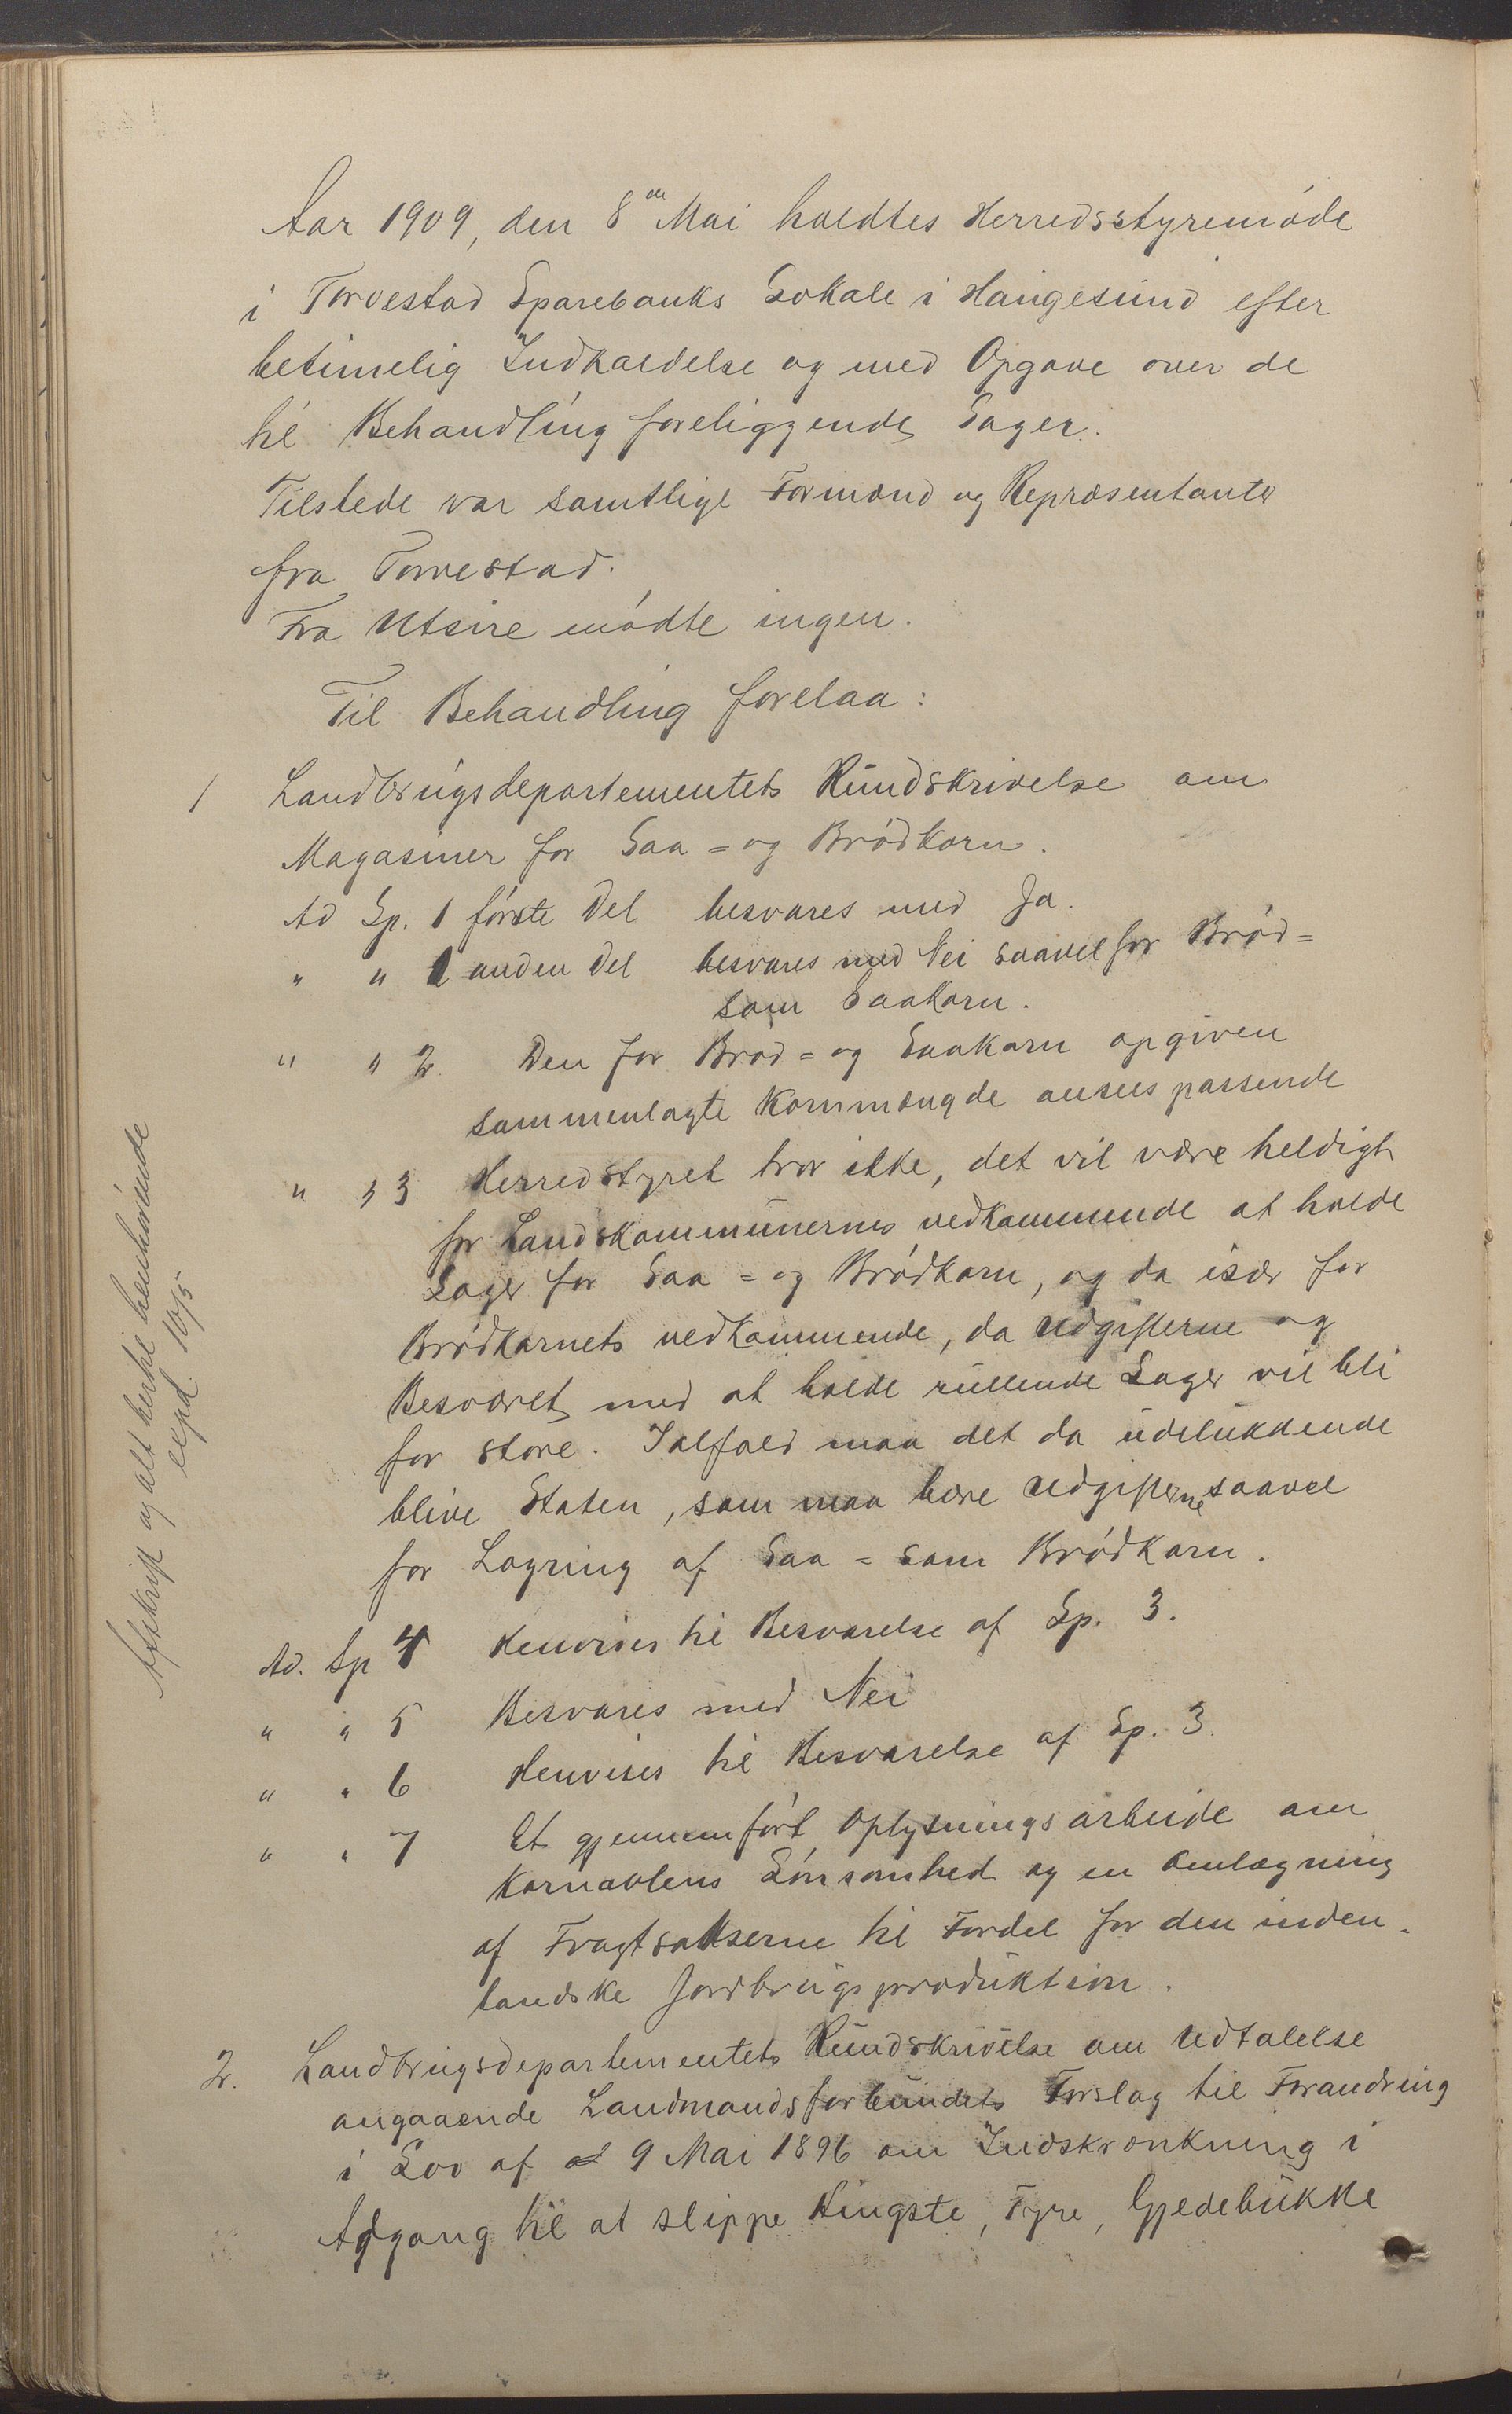 Aar 1909, den 8de Mai holdtes Herredsstyremøde
i Torvestad Sparebanks Lokale i Haugesund efter
betimelig Indkaldelse og med Opgave over de
til Behandling foreliggende Sager.
Tilstede var samtlige Formænd og Repræsentanter
fra Torvestad.
Fra Utsire mødte ingen.
Til Behandling forelaa:
1 Landbrugsdepartementets Rundskrivelse om
Magasiner for Saa= og Brødkorn.
Ad Sp. 1 første Del besvares med Ja.
" " 1 anden Del besvares med Nei saavel for Brød=
som Saakorn.
" " 2 Den for Brød= og Saakorn opgiven
sammenlagte Kornmængde ansees passende
" " 3 Herredstyret tror ikke, det vil være heldigt
for Landskommunernes vedkommende at holde
Lager for Saa= og Brødkorn, og da især for
Brødkornets vedkommende, da Udgifterne og
Besværet med at holde rullende Lager vil bli
for store. Ialfald maa det da udelukkende
blive Staten, som maa bære Udgifterne saavel
for Lagring af Saa= som Brødkorn.
Ad. Sp 4 Henvises til Besvarelse af Sp. 3.
" " 5 Besvares med Nei
" " 6 Henvises til Besvarelse af Sp. 3.
" " 7 Et gjennemført Oplysningsarbeide om
Kornavlens Lønsomhed og en Omlægning
af Fragtsatserne til Fordel for den inden-
landske Jordbrugsproduktion.
2. Landbrugsdepartementets Rundskrivelse om Udtalelse
angaaende Landmandsforbundets Forslag til Forandring
i Lov af 9 Mai 1896 om Indskrænkning i
Adgang til at slippe Hingste, Tyre, Gjedebukke
Afskrift og alt hertil henhørende
expd. 10/5